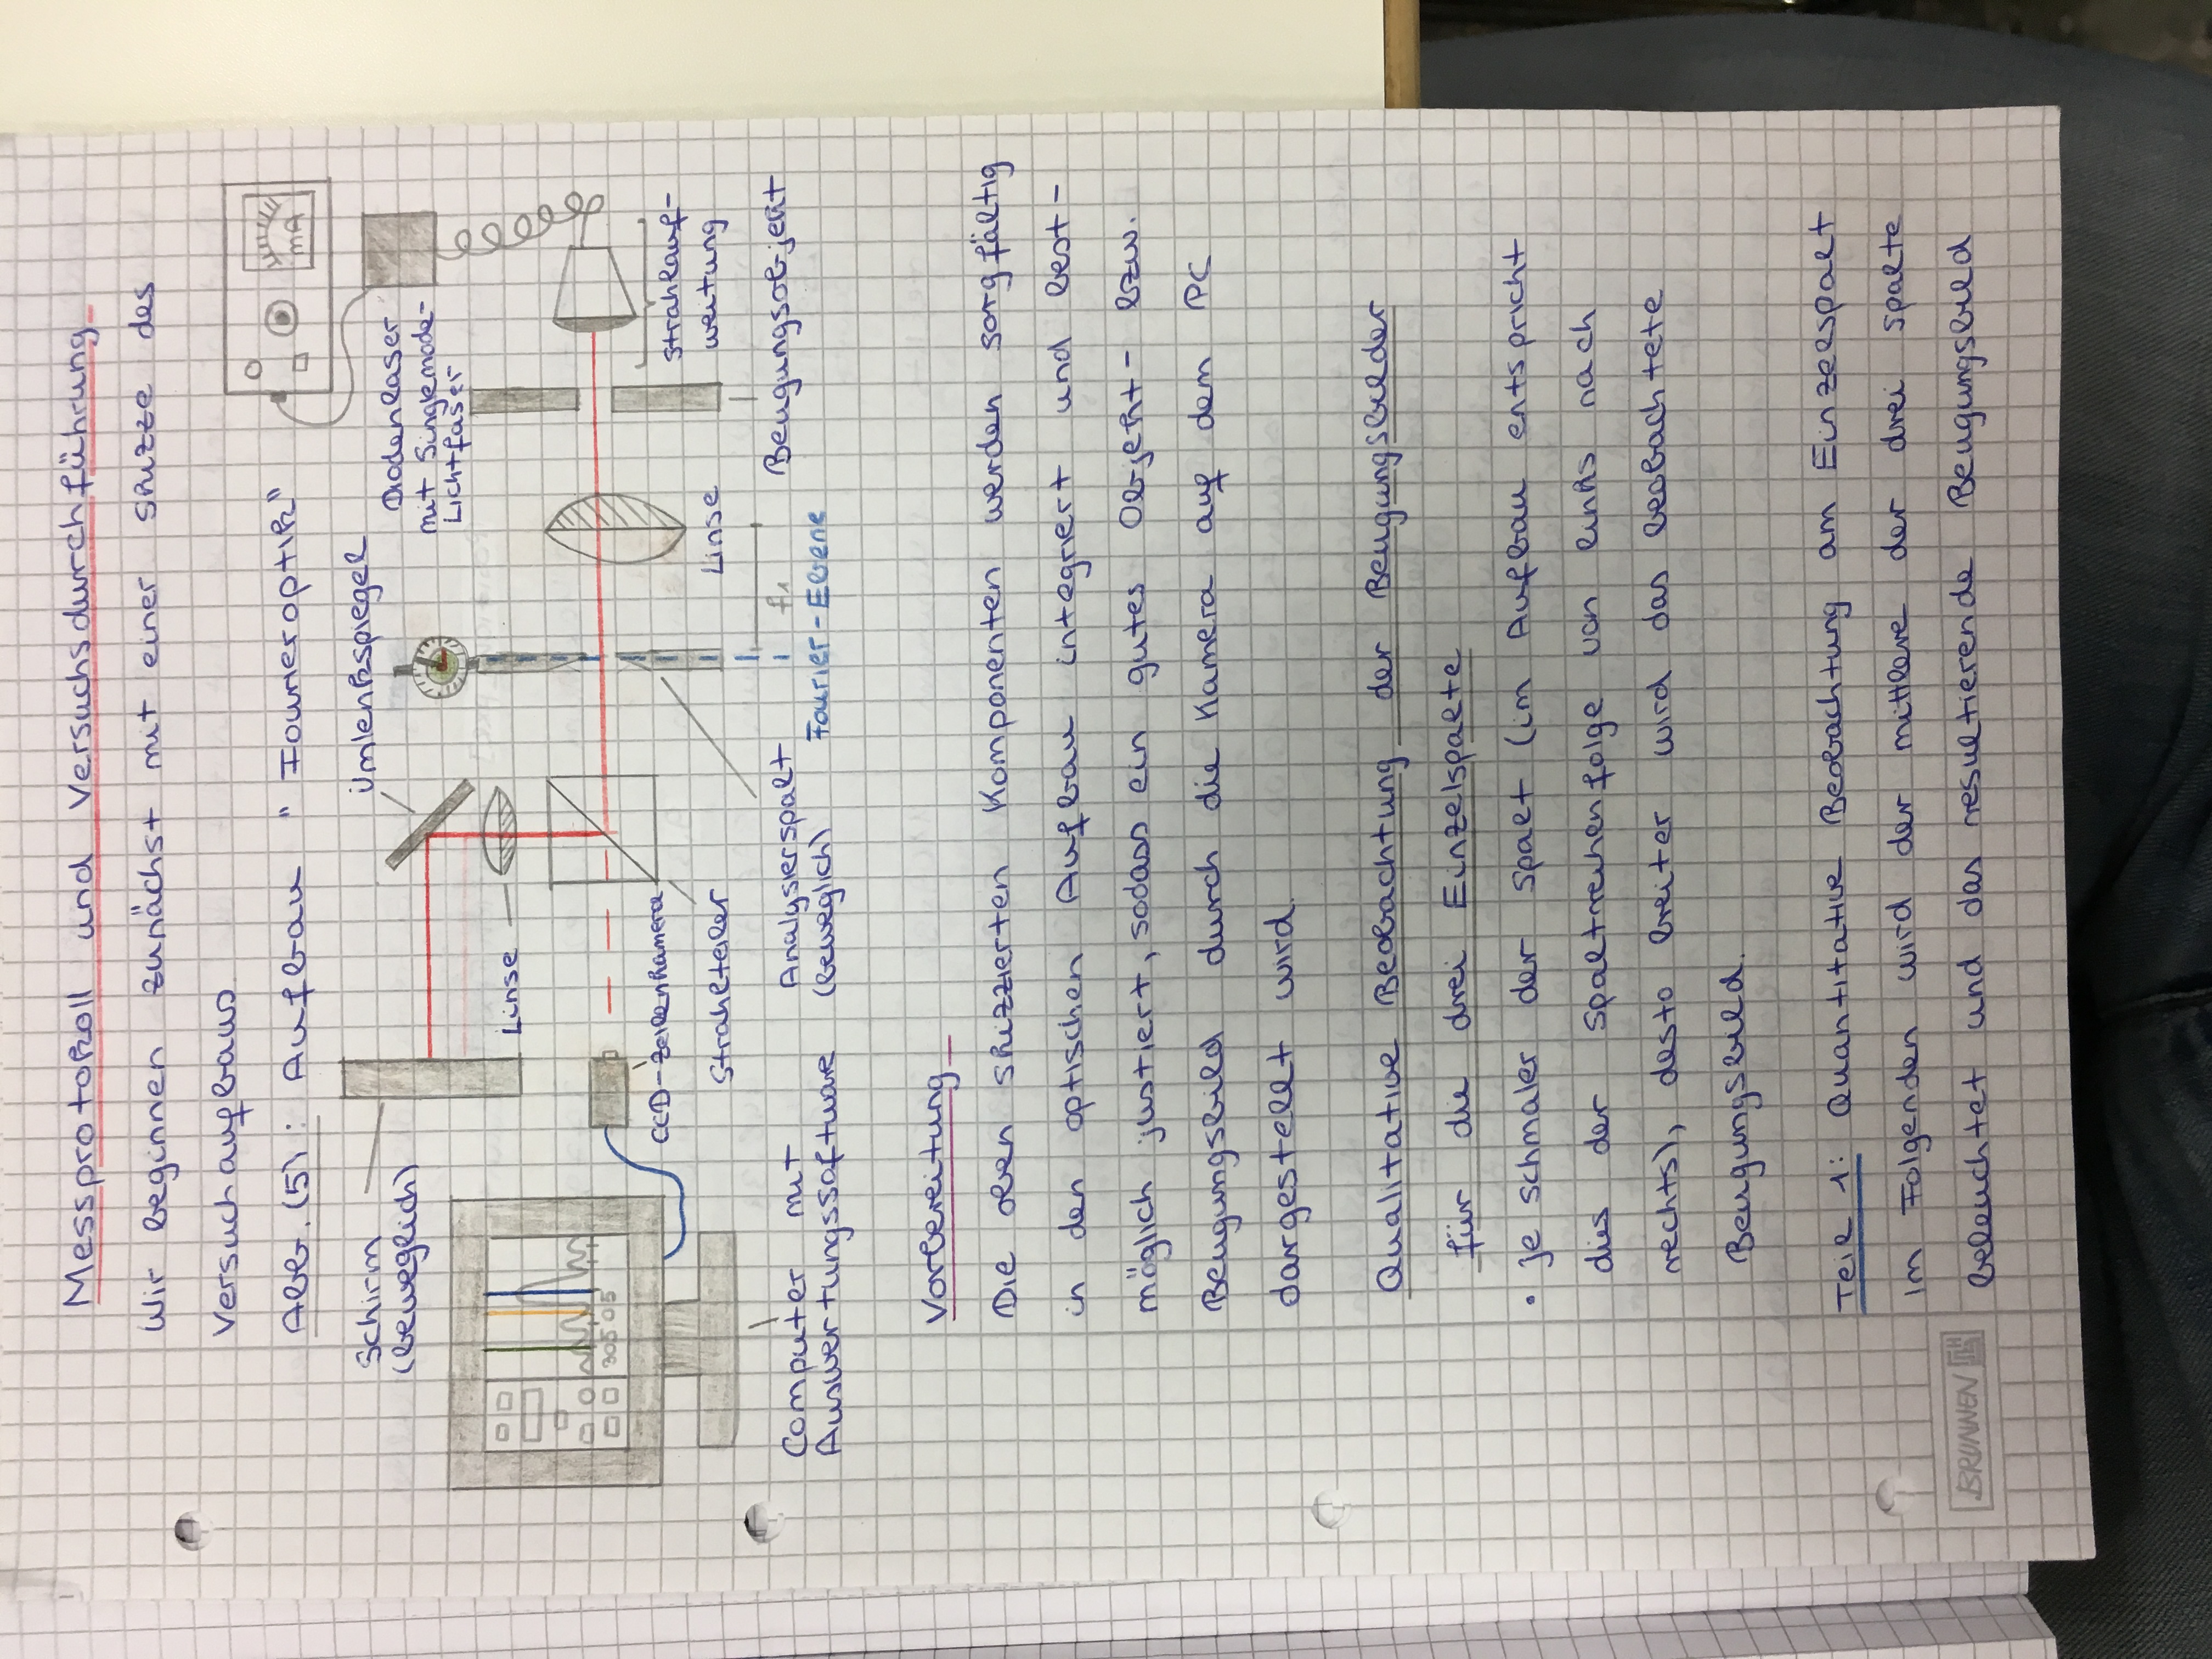 Messprotokoll und Versuchsdurchführung
Wir beginnen zunächst mit einer Skizze des
Versuchaufbaus
Abb. (5): Aufbau "Fourieroptik"
mA
Schirm
(beweglich)
Umlenkspiegel
Diodenlaser
mit Singlemode-
Lichtfaser
Linse
305 0 5
CCD-Zeilenkamera
Strahlteiler
Linse
Strahlauf-
weitung
Computer mit
Auswertungssoftware
Analysierspalt
(beweglich)
f1
Fourier-Ebene
Beugungsobjekt
Vorbereitung
Die oben skizzierten Komponenten werden sorgfältig
in den optischen Aufbau integriert und best-
möglich justiert, sodass ein gutes Objekt- bzw.
Beugungsbild durch die Kamera auf dem PC
dargestellt wird.
Qualitative Beobachtung der Beugungsbilder
für die drei Einzelspalte
• je schmaler der Spalt (im Aufbau entspricht
dies der Spaltreihenfolge von links nach
rechts), desto breiter wird das beobachtete
Beugungsbild.
Teil 1: Quantitative Beobachtung am Einzelspalt
Im Folgenden wird der mittlere der drei Spalte
beleuchtet und das resultierende Beugungsbild
BRUNNEN